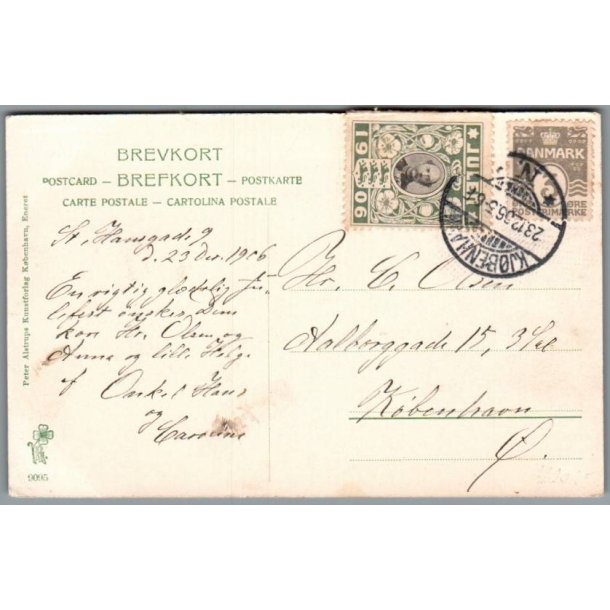 BREVKORT
POSTCARD — BREFKORT — POSTKARTE
CARTE POSTALE — CARTOLINA POSTALE
Peter Alstrups Kunstforlag København, Eneret
9095
St. Hansgade 9
d. 23 Dec. 1906
En rigtig glædelig Ju-
lefest ønskes Dem
Hr. Olsen og
Anna og lille Helge
af Onkel Hans
og
Caroline
JUL
1906
DANMARK
3
KJØBENHAVN
23.12.06
Hr. C. Olsen
Aalborggade 15, 3 Sal
København
Ø.